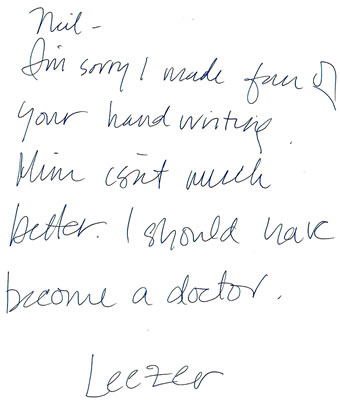 Neil-
I'm sorry I made fun of
your handwriting.
Mine isn't much
better. I should have
become a doctor.
Leezer